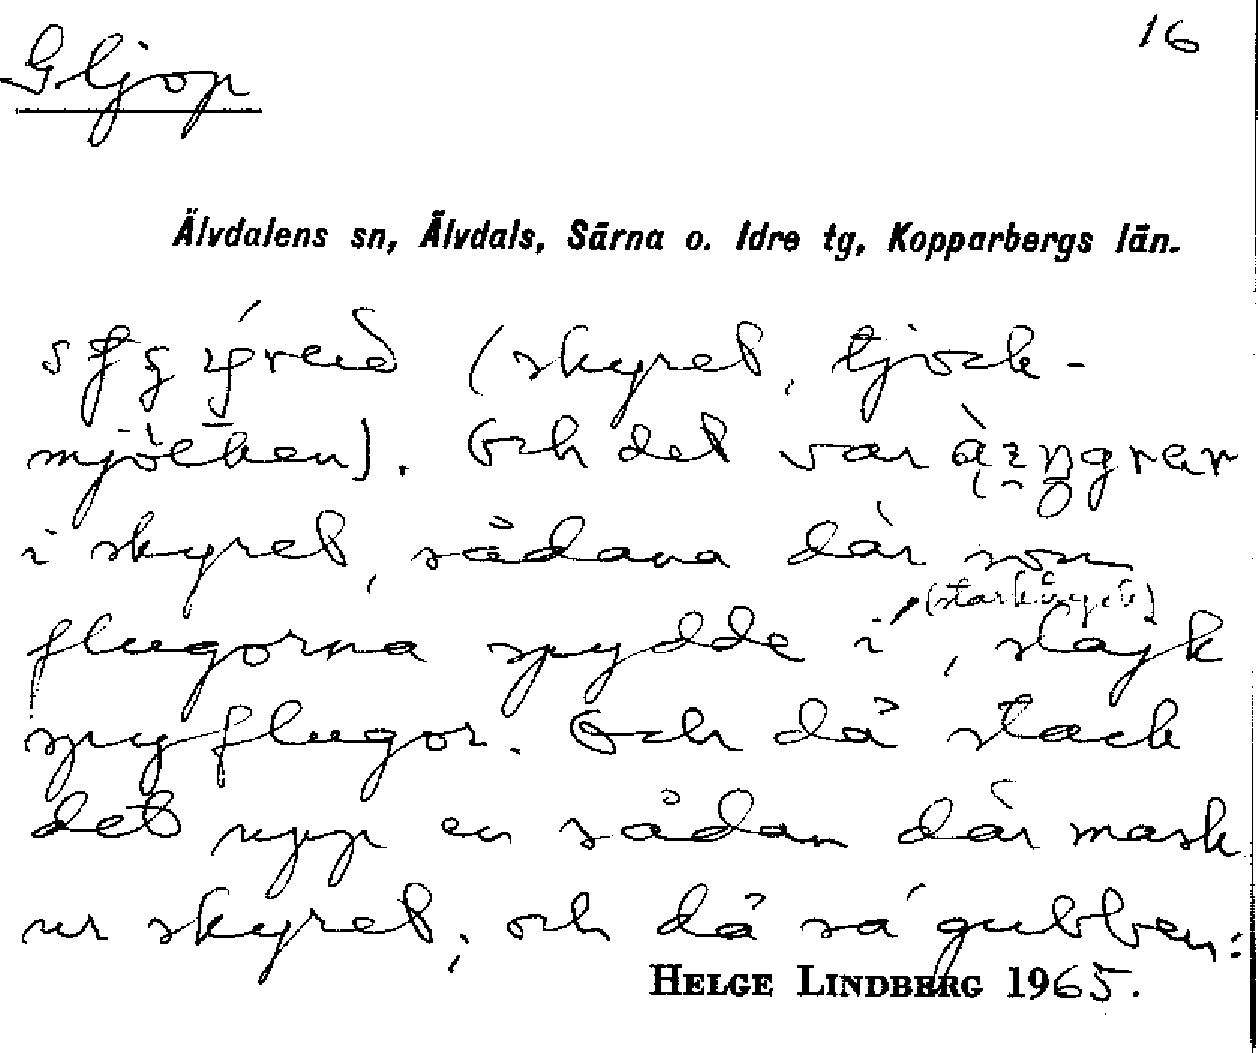 16
Gljop
Älvdalens sn, Älvdals, Särna o. Idre tg, Kopparbergs län.
(skyret, tjock-
mjölken). Och det var
i skyret, sådana där som
(starkånget)
flugorna spydde i, slajk
spyflugor. Och då stack
det upp en sådan där mask
ur skyret, och då sa gubben:
HELGE LINDBERG 1965.